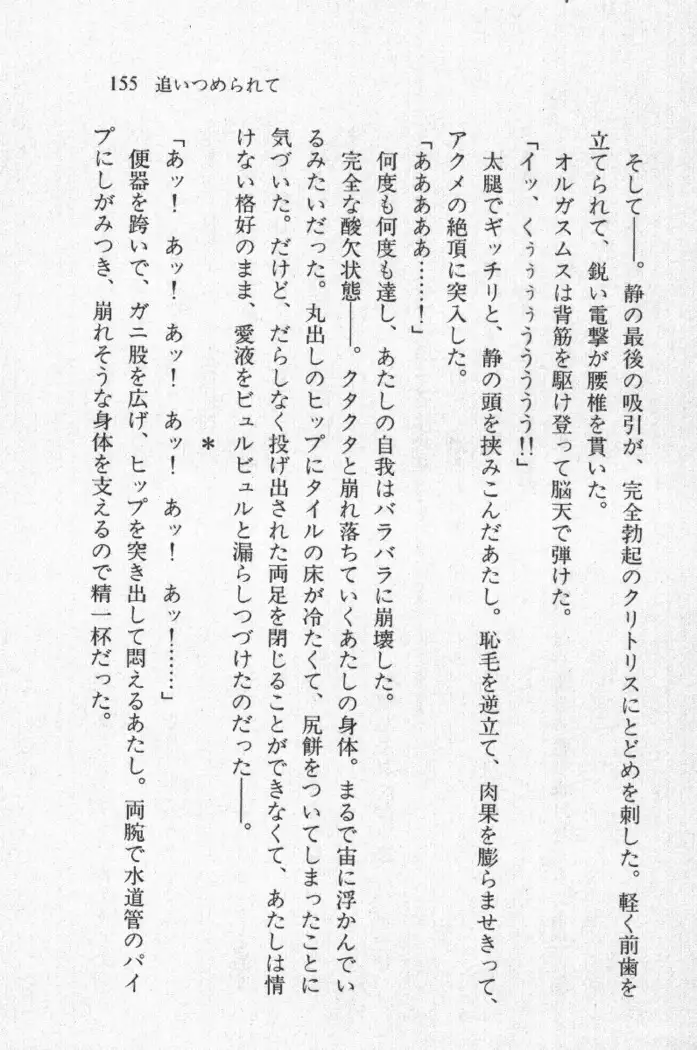 155 追いつめられて
そして――。静の最後の吸引が、完全勃起のクリトリスにとどめを刺した。軽く前歯を
立てられて、鋭い電撃が腰椎を貫いた。
オルガスムスは背筋を駆け登って脳天で弾けた。
「イッ、くぅぅぅぅうううう!!」
太腿でギッチリと、静の頭を挟みこんだあたし。恥毛を逆立て、肉果を膨らませきって、
アクメの絶頂に突入した。
「あああああ……!」
何度も何度も達し、あたしの自我はバラバラに崩壊した。
完全な酸欠状態――。クタクタと崩れ落ちていくあたしの身体。まるで宙に浮かんでい
るみたいだった。丸出しのヒップにタイルの床が冷たくて、尻餅をついてしまったことに
気づいた。だけど、だらしなく投げ出された両足を閉じることができなくて、あたしは情
けない格好のまま、愛液をビュルビュルと漏らしつづけたのだった――。
*
「あッ! あッ! あッ! あッ! あッ! あッ!……」
便器を跨いで、ガニ股を広げ、ヒップを突き出して悶えるあたし。両腕で水道管のパイ
プにしがみつき、崩れそうな身体を支えるので精一杯だった。